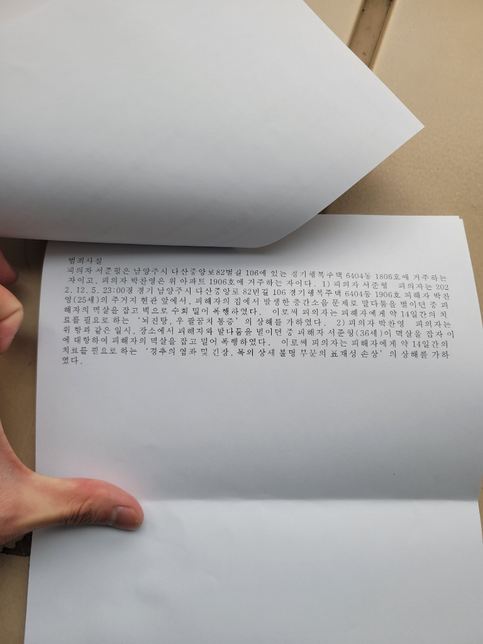 범죄사실
피의자 서준필은 남양주시 다산중앙로82번길 106에 있는 경기행복주택 6404동 1806호에 거주하는
자이고, 피의자 박찬영은 위 아파트 1906호에 거주하는 자이다. 1) 피의자 서준필   피의자는 202
2. 12. 5. 23:00경 경기 남양주시 다산중앙로 82번길 106 경기행복주택 6404동 1906호 피해자 박찬
영(25세)의 주거지 현관 앞에서, 피해자의 집에서 발생한 층간소음 문제로 말다툼을 벌이던 중 피
해자의 멱살을 잡고 벽으로 수회 밀어 폭행하였다.  이로써 피의자는 피해자에게 약 14일간의 치
료를 필요로 하는 '뇌진탕, 우 팔꿈치 통증' 의 상해를 가하였다.  2) 피의자 박찬영   피의자는
위 항과 같은 일시, 장소에서 피해자와 말다툼을 벌이던 중 피해자 서준필(36세)이 멱살을 잡자 이
에 대항하여 피해자의 멱살을 잡고 밀어 폭행하였다.  이로써 피의자는 피해자에게 약 14일간의
치료를 필요로 하는 '경추의 염좌 및 긴장, 목의 상세 불명 부분의 표재성 손상' 의 상해를 가하
였다.